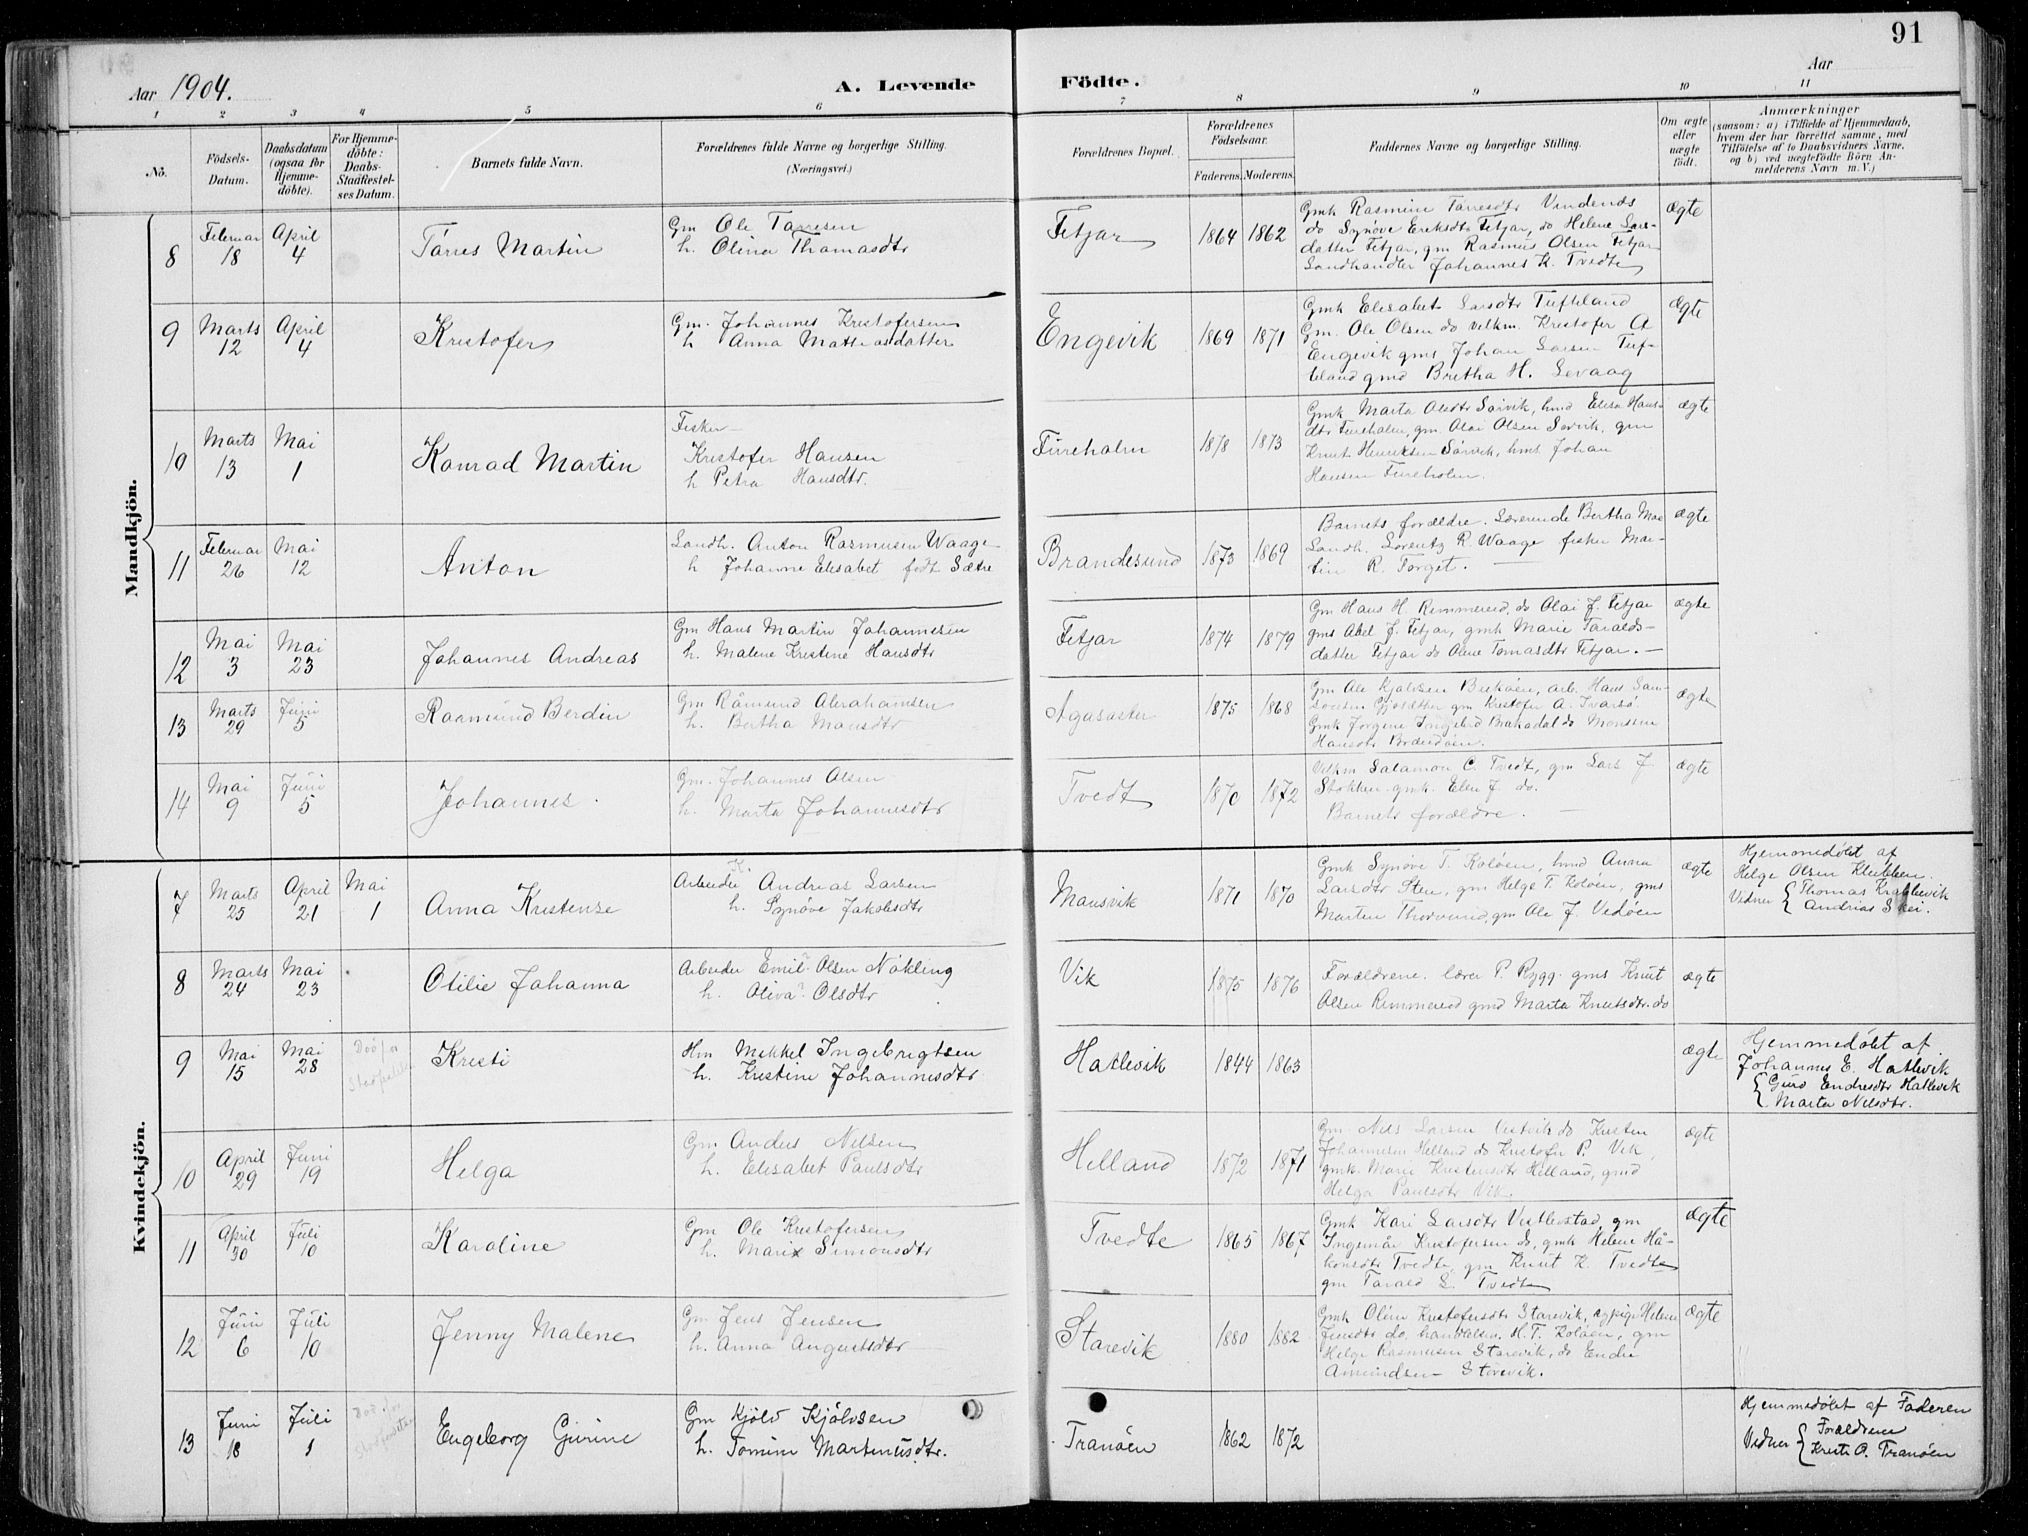 91
Aar 1904.
A. Levende Födte.
Aar
1 2 3 4 5 6 7 8 9 10 11
No.
Födsels-Datum.
Daabsdatum (ogsaa for Hjemme-döbte).
For Hjemme-döbte: Daabs-Stadfestel-ses Datum.
Barnets fulde Navn.
Forældrenes fulde Navne og borgerlige Stilling. (Næringsvei.)
Forældrenes Bopæl.
Forældrenes Födselsaar.
Faderens. Moderens.
Faddernes Navne og borgerlige Stilling.
Om ægte eller uægte födt.
Anmærkninger
(saasom: a) i Tilfælde af Hjemmedaab,
hvem der har forrettet samme, med
Tilföielse af to Daabsvidners Navne,
og b) ved uægtefödte Börn An-
melderens Navn m. V.)
Mandkjön.
8 Februar 18 April 4 Tørres Martin
Gm Ole Tørresen
h. Olina Thomasdtr
Fitjar 1864 1862
Gmk Rasmine Tørresdtr Vindenes
do Synøve Eriksdtr Fitjar, do Helene Lars-
datter Fitjar, gm Rasmus Olsen Fitjar
Landhandler Johannes K. Tvedte
ægte
9 Marts 12 April 4 Kristofer
Gm. Johannes Kristofersen
h Anna Mattiasdatter
Engevik 1869 1871
Gmk Elisabet Larsdtr Tufteland
Gm. Ole Olsen do velkm. Kristofer A
Engevik gms Johan Larsen Tuf-
teland gmd Bertha H. Levaag
ægte
10 Marts 13 Mai 1 Konrad Martin
Fisker
Kristofer Hansen
h Petra Hansdtr.
Fureholm 1878 1873
Gmk Marta Olsdtr Sørvik, hmd Elisa Hans-
dtr Fureholm, gm. Olai Olsen Sørvik, gm
Knut Henriksen Sørvik, hms. Johan
Hansen Fureholm.
ægte
11 Februar 26 Mai 12 Anton
Landh. Anton Rasmusen Waage
h Johanne Elisabet født Sætre
Brandesund 1873 1869
Barnets forældre. Lærerinde Bertha Moe
Landh. Lorentz R. Waage fisker Mar-
tin R. Torget.
ægte
12 Mai 3 Mai 23 Johannes Andreas
Gm Hans Martin Johannesen
h. Malene Kristine Hansdtr
Fitjar 1874 1879
Gm Hans H. Rimmereid, do Olai J. Fitjar
gms Abel J. Fitjar, gmk Marie Taralds-
datter Fitjar do Oline Tomasdtr Fitjar.
ægte
13 Marts 29 Juni 5 Raamund Berdin
Gm Råmund Abrahamsen
h. Bertha Monsdtr
Agasøster 1875 1868
Gm Ole Kjølvsen Birkøen, arb. Hans
gm Kristofer A. Ivarsø.
Gmk Jorgine Ingebrd Brekedal do Monsine
Hansdtr
ægte
14 Mai 9 Juni 5 Johannes.
Gm. Johannes Olsen
h. Marta Johannesdtr
Tvedt 1870 1872
Velkm Salamon C. Tvedt, gm Lars J.
Stokken gmk. Elen J. do.
Barnets forældre.
ægte
Kvindekjön.
7 Marts 25 April 21 Mai 1 Anna Kristense
Arbeider K. Andreas Larsen
h. Synøve Jakobsdtr
Mansvik 1871 1870
Gmk Synøve T. Koløen, hmd Anna
Larsdtr Sten, gm Helge T. Koløen, gms
Martin gm Ole J. Vedøen
ægte
Hjemmedøbt af
Helge Olsen Klubben.
Vidner Thomas Krakkevik
Andrias Skei.
8 Marts 24 Mai 23 Otilie Johanna
Arbeider Emil Olsen Nøkling
h. Oliva Olsdtr
Vik 1875 1876
Forældrene. lærer P. Rygg. gms Knut
Olsen Rimmereid gmd Marta Knutsdtr. do
ægte
9 Mai 15 Mai 28 Kristi
Hm Mikkel Ingebrigtsen
h. Kristine Johannesdtr
Hatlevik 1844 1863
ægte
Hjemmedøbt af
Johannes E. Hatlevik
Guro Endresdtr Hatlevik
Marta Nilsdtr.
10 April 29 Juni 19 Helga
Gm Anders Nilsen
h. Elisabet Paulsdtr
Helland 1872 1871
Gm. Nils Larsen Vestvik do Kristen
Johannesen Helland do Kristofer P. Vik,
gmk. Marie Kristensdtr Helland, gmd
Helga Paulsdtr Vik.
ægte
11 April 30 Juli 10 Karoline
Gm Ole Kristofersen
h. Marie Simonsdtr
Tvedte 1865 1867
Gmk Kari Larsdtr Vestbostad, gm
Ingemår Kristofersen do, gmk Helene Hå-
konsdtr Tvedte, gm Knut K. Tvedte
gm Tarald L. Tvedte
ægte
12 Juni 6 Juli 10 Jenny Malene
Gm Jens Jensen
h. Anna Augustsdtr
Starevik 1880 1882
Gmk Oline Kristofersdtr Starevik, pige Helene
Jensdtr do, handelsm. H. T. Koløen, gm
Helge Rasmusen Starevik, do Endre
Amundsen Storevik.
ægte
13 Juni 18 Juli 1 Engeborg Gurine
Gm Kjölv Kjölvsen
h. Tomine Martinusdtr.
Tranøen 1862 1872
Hjemmedøbt af Faderen
Vidner Forældrene
Kristi O. Tranøen